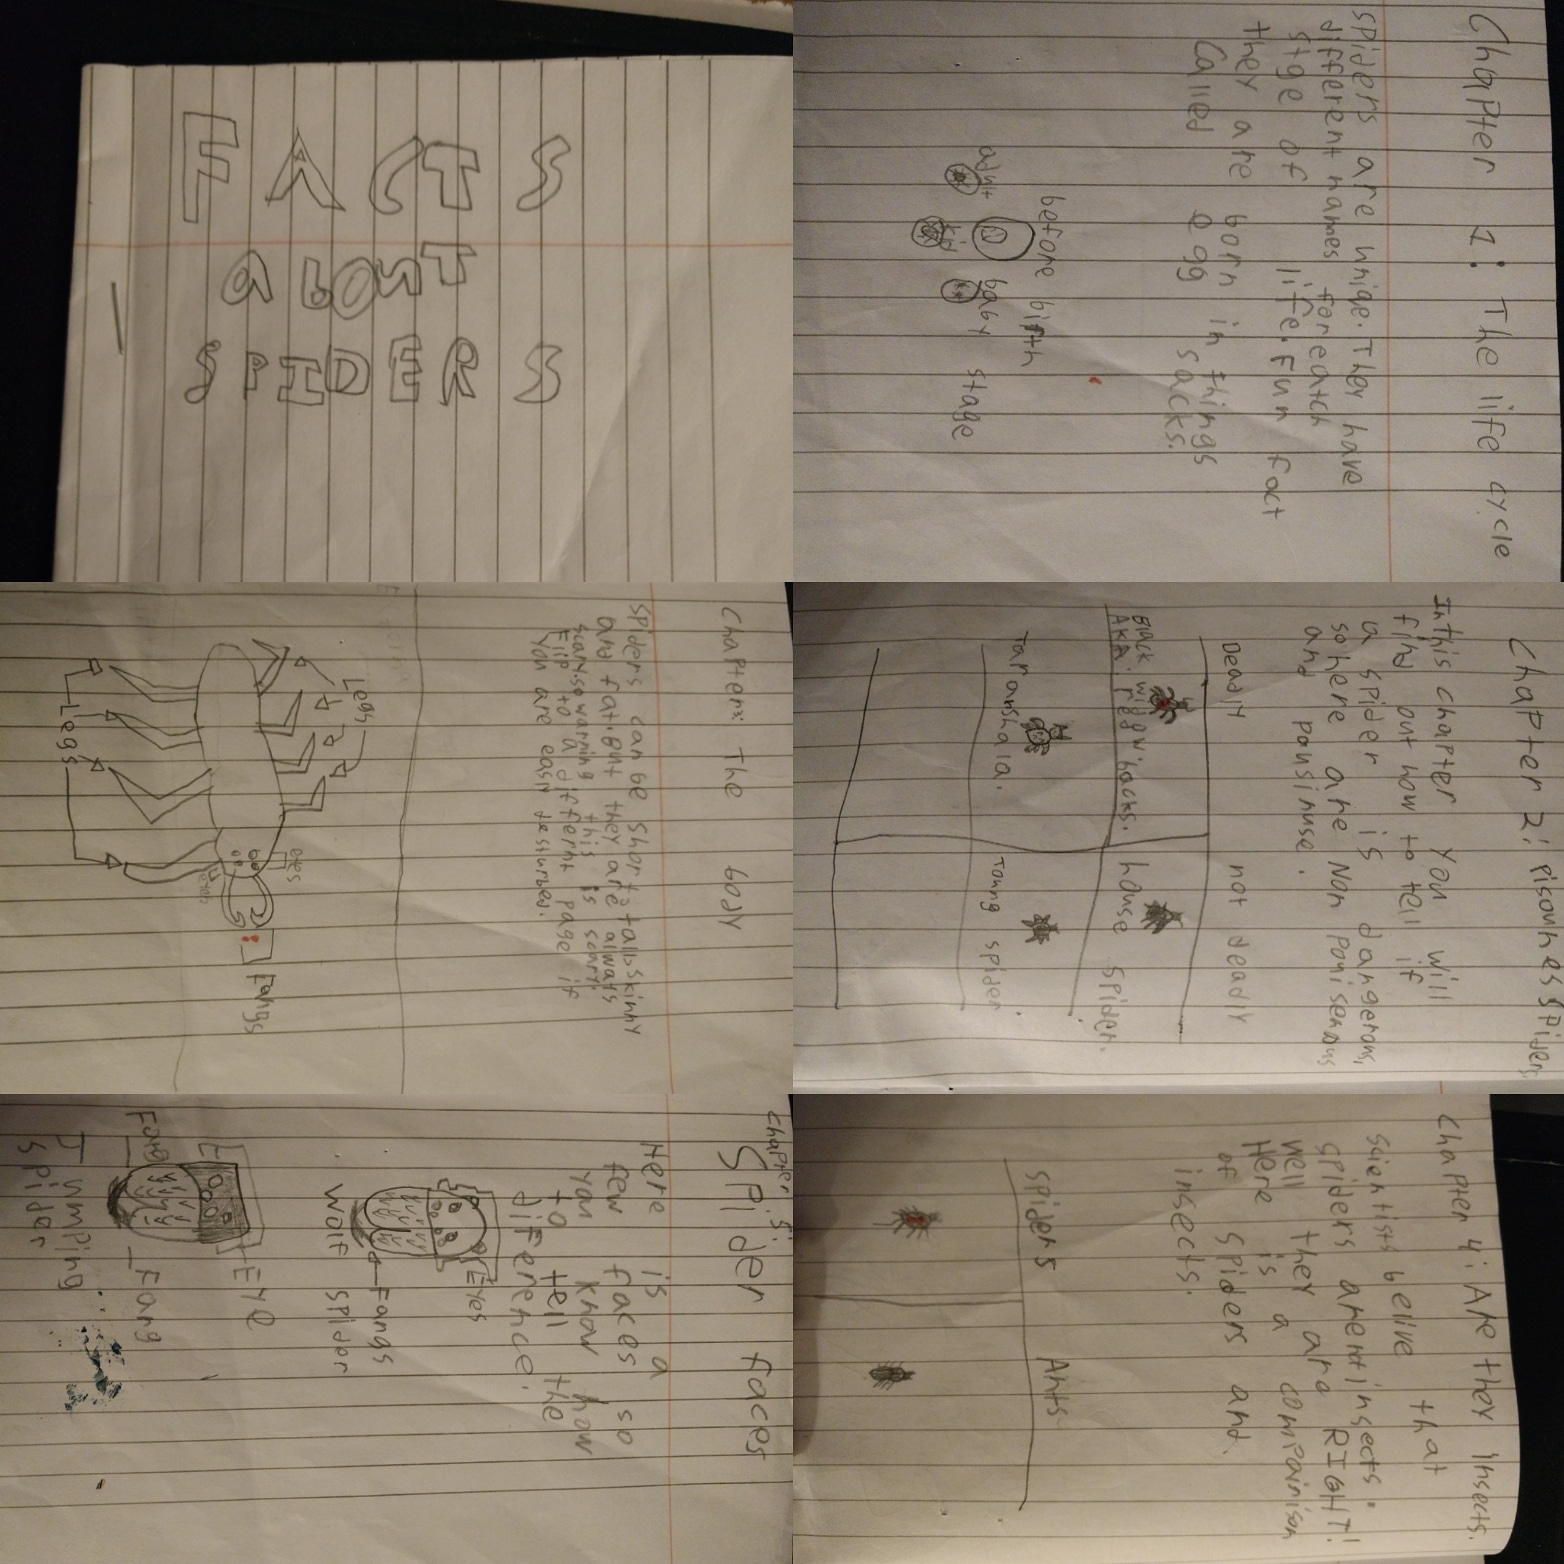 FACTS
abOST
SPIDERS
Chapter 1: The life cycle
spiders are uniqe. They have
different names for eatch
stge of life. Fun fact
they are born in things
Called egg sacks.
before birth
adult
baby stage
kid
Chapter: The body
spiders can be short, tall, skinny
and fat. But they are always
scary. so warning this is scary
Flip to a differnt page if
You are easly desturbed.
Legs
Legs
eyes
Fangs
Chapter 2: Pisonness Spiders
In this chapter You will
find out how to tell if
a spider is dangerous,
so here are Non poniserous
and ponsinuse.
Deadly
not deadly
Black widow
AKA: red backs.
house spider.
Taranshala.
Young spider.
Chapter 5:
Spider faces
Here is a
few faces so
you know how
to tell the
diference.
Eyes
Fangs
Wolf spider
EYe
Fang
Fang
Jumping
spider
Chapter 4: Are they insects.
scientists belive that
spiders arent insects.
well they are RIGHT!
Here is a compainison
of spiders and
insects.
spiders
Ants